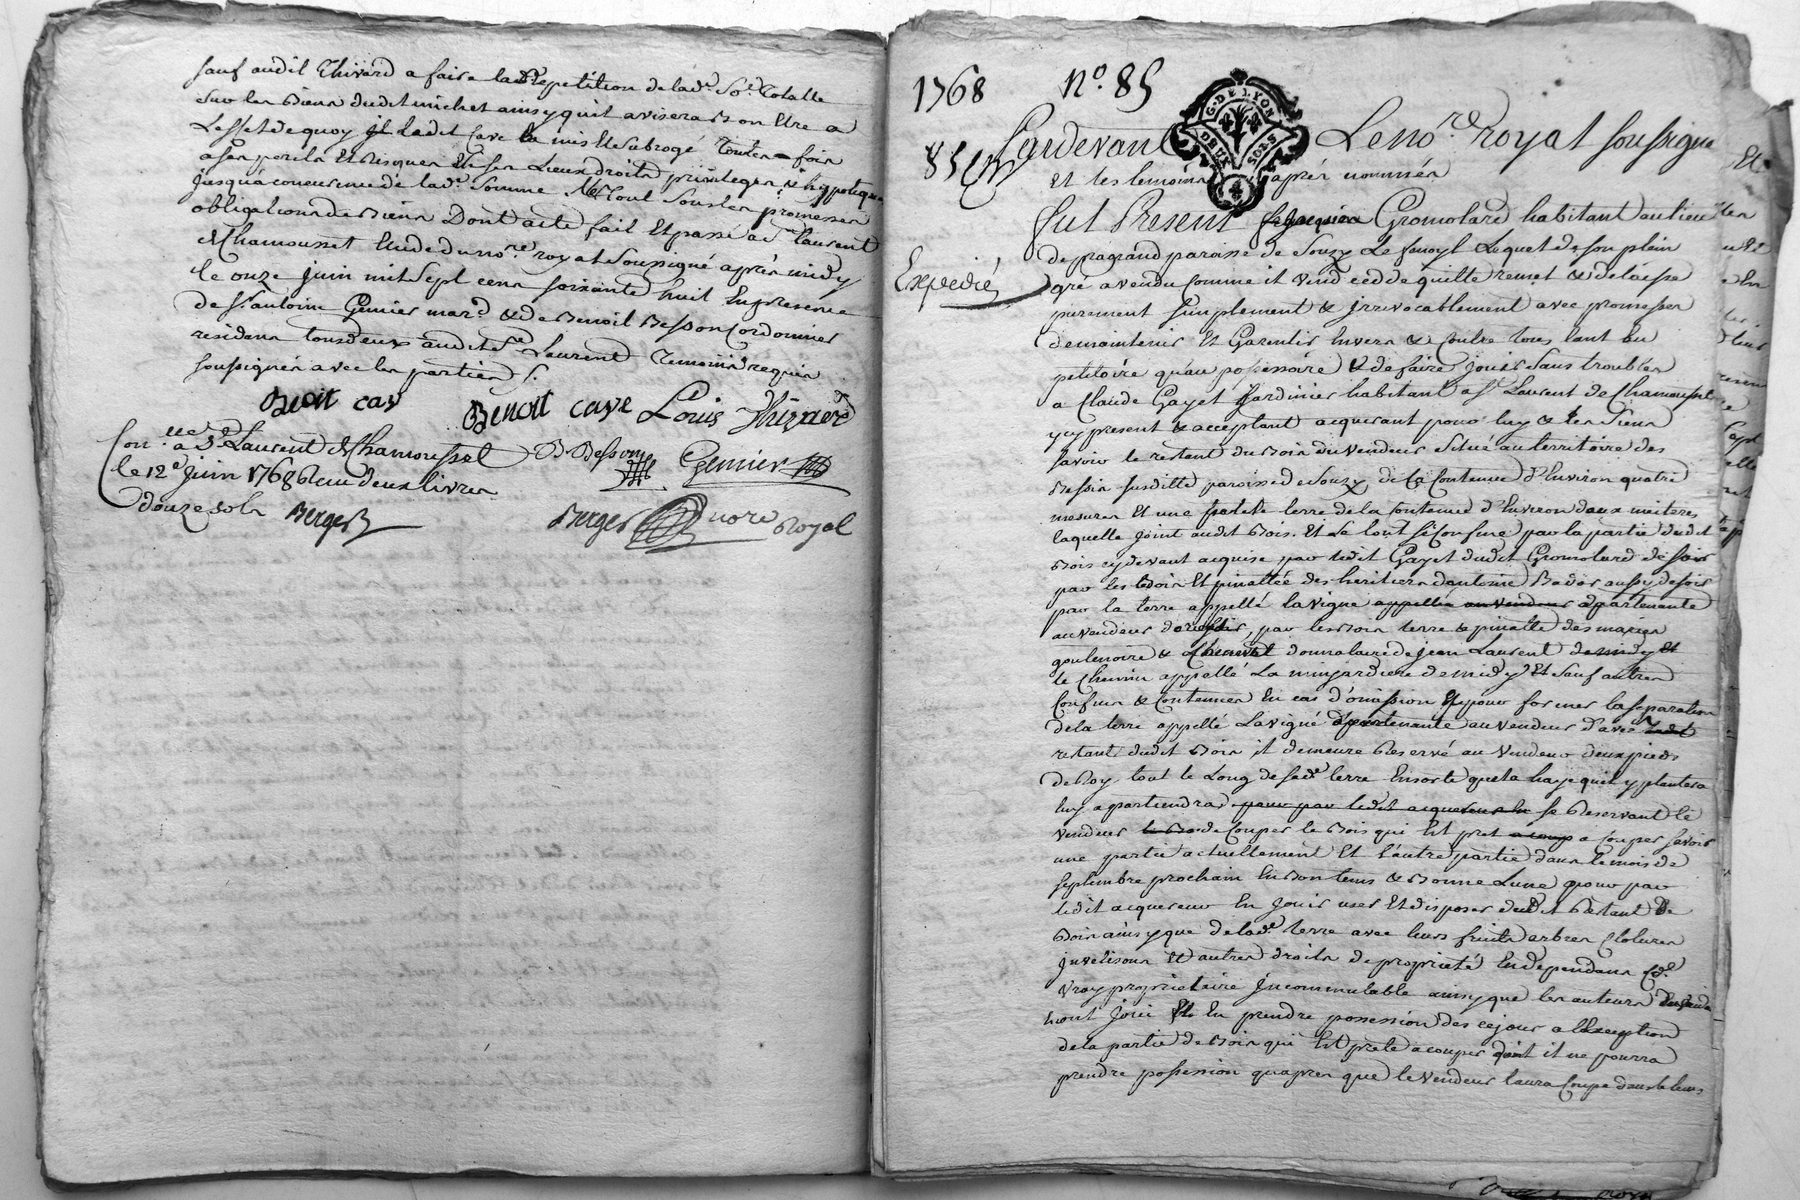 sauf audit Thivard a faire la Repetition de lad.e So.e totalle
sur les biens dudit michet ainsy quil avisera bon Etre a
Leffet de quoy il Ladit Cave la mis et subrogé toutes fois
a ses perils Et Risques En ses Lieux droits privileges & hypoteques
jusqua concurrence de lad.e somme Le tout sous les promesses
obligations de biens Dont acte fait Et passé a S.t Laurent
de Chamousset Etude du no.re royal soussigné après midy
le onze juin mil sept cens soixante huit En presence
de S.r antoine Gemier mar.d & de Benoit Besson Cordonnier
residens tous deux audit S.t Laurent Temoins requis
soussignés avec les parties
Benoit cav
Benoit cave Louis Thivard
Con.lle a S.t Laurent de Chamousset
B Besson Gemier
le 12.e Juin 1768 Recu deux livres
douze sols Berger
Berger no.re Royal
1768 N.o 85
G. DE LYON
DEUX SOLS
4
Pardevant Le no.re royal soussigné
85
Et les temoins après nommés
fut Present Gromolard habitant au lieu
Expedié
de pragrand paroisse de Souzy Lequel de son plein
gré a vendu comme il vend cedde quitte remet & delaisse
purement simplement & irrevocablement avec promesses
de maintenir Et Garentir Envers & Contre tous tant au
petitoire qu'au possessoire & de faire jouir sans troubles
a Claude Gayet Jardinier habitant a S.t Laurent de Chamousset
ycy present & acceptant acquerant pour luy & les siens
savoir le restant du bois du vendeur situé au territoire des
susditte paroisse de Souzy de la Contenue d'Environ quatre
mesures Et une terre de la Contenue d'Environ deux meiteres
laquelle joint audit bois. Et le tout se Confine par la partie dudit
bois cy devant acquise par ledit Gayet dudit Gromolard de soir
par les bois Et pinattée des heritiers d'antoine Bador aussy de soir
par la terre appellé la vigne appellée au vendeur apartenante
au vendeur par les bois terre & pinatte des mariés
& donnataire de jean Laurent de midy et
le Chemin appellé La minjardiere de midy Et sauf autres
Confins & Contenues En cas d'omission Et pour former la separation
de la terre appellé La vigne apartenante au vendeur d'avec
restant dudit bois il demeure Reservé au vendeur deux pieds
de Roy tout le Long de sad.e terre Ensorte que la haye quil y plantera
luy apartiendra pour par ledit acquereur se Reservant le
vendeur de Couper le bois qui Est pret a couper savoir
une partie actuellement Et l'autre partie dans le mois de
septembre prochain En bon tems & bonne Lune pour par
ledit acquereur En jouir user Et disposer dudit Restant de
bois ainsy que de lad.e terre avec leurs fruits arbres Clotures
Et autres droits de proprieté En dependans
vray proprietaire incommutable ainsy que les auteurs
nont joui Et En prendre possession des ce jour a l'exception
de la partie de bois qui Est prete a couper dont il ne pourra
prendre possession quapres que le vendeur l'aura Coupé dans le tems